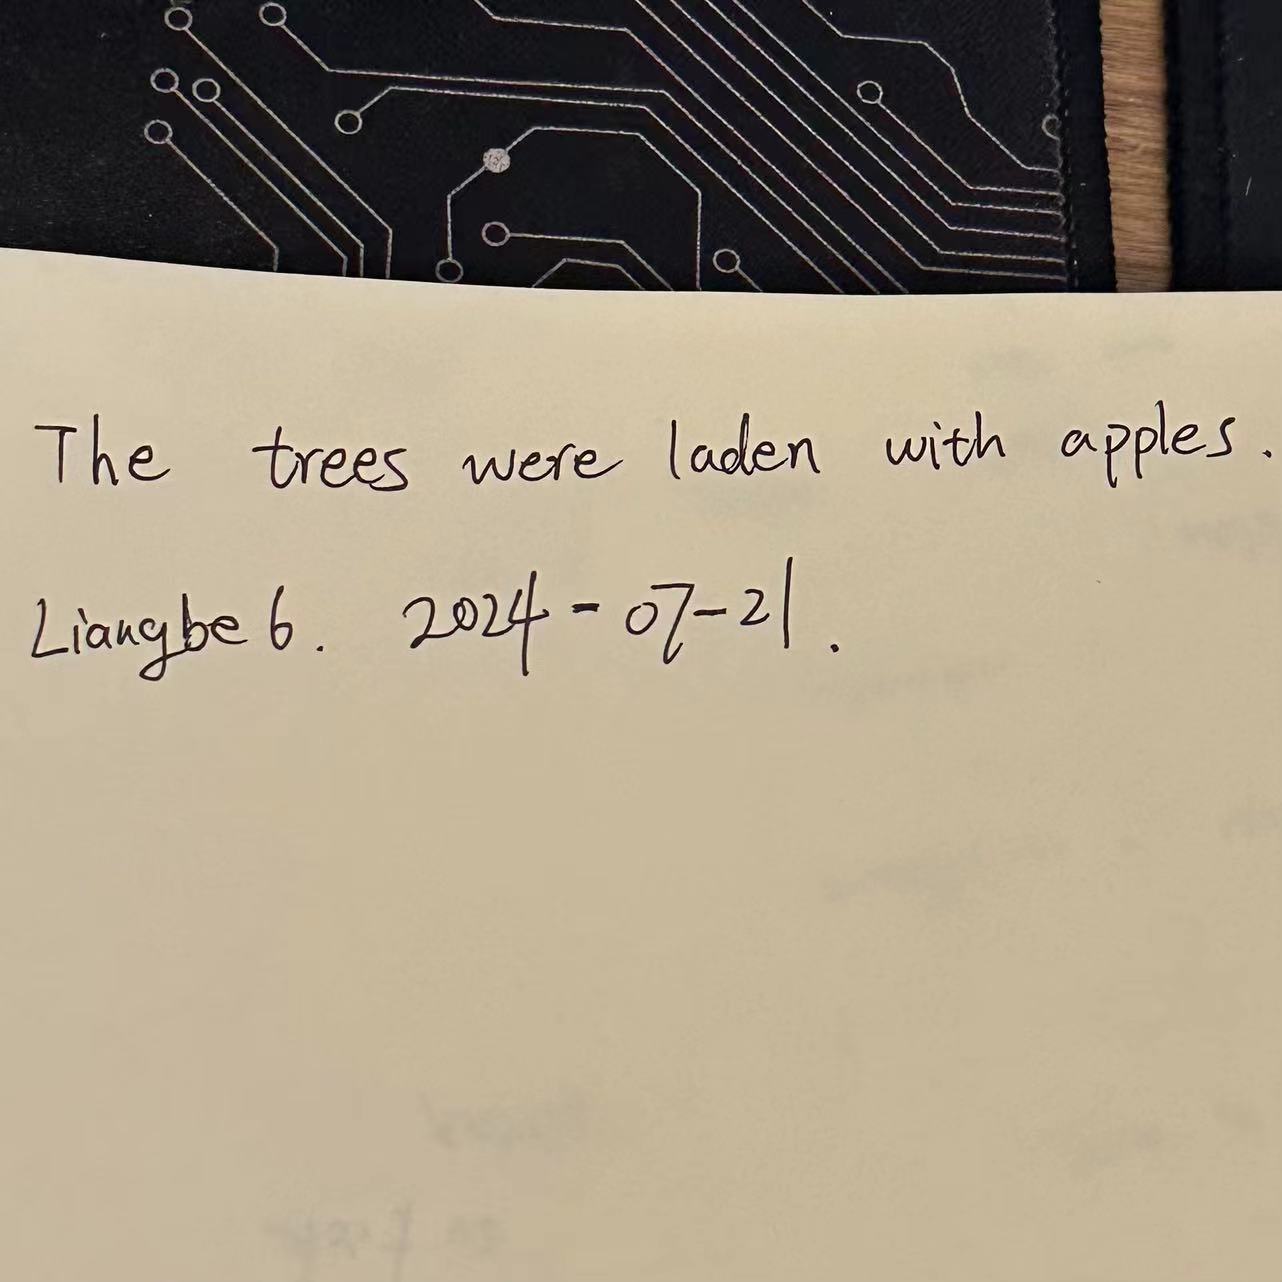 The trees were laden with apples.
Liangbe6. 2024-07-21.